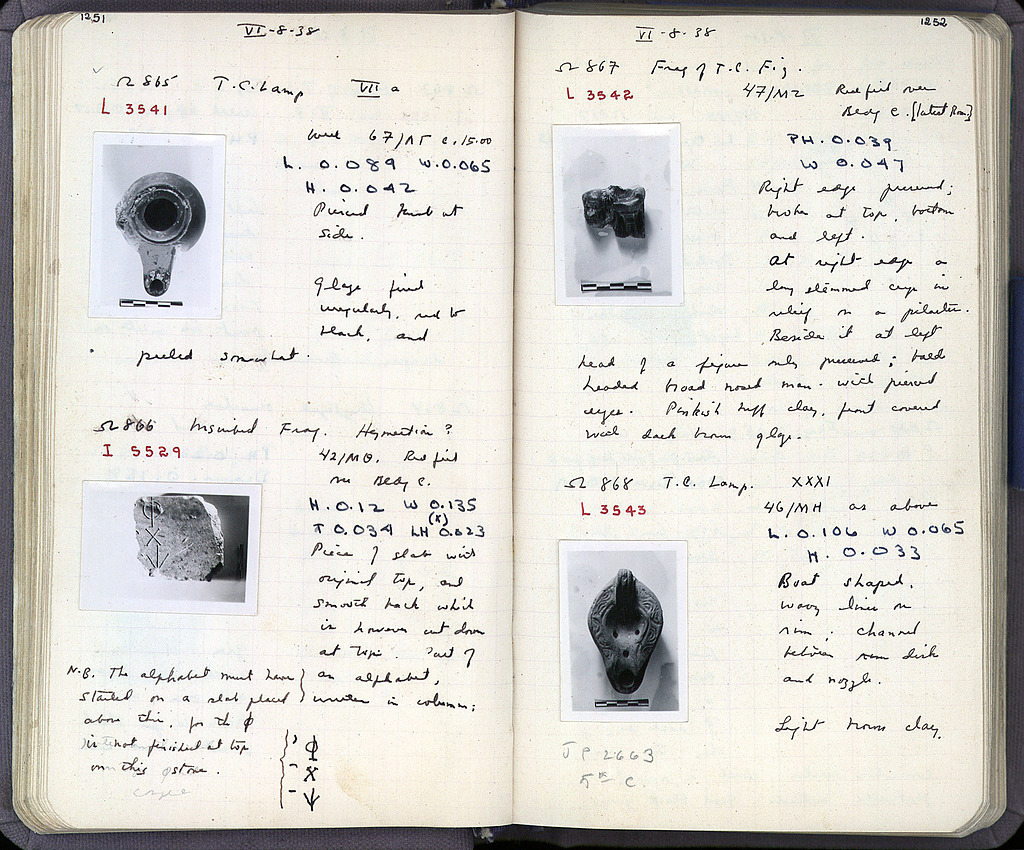 1251
VI-8-38
Ω 865 T.C. Lamp VII a
L 3541
Well 67/ΛΓ c. 15.00
L. 0.089 W. 0.065
H. 0.042
Pierced knob at
side.
Glaze fired
irregularly, red to
black, and
peeled somewhat.
Ω 866 Inscribed Frag. Hymettian?
I 5529
42/ΜΘ. Red fill
over Bedg C.
H. 0.12 W 0.135
T 0.034 LH 0.023
(x)
Piece of slab with
original top, and
smooth back which
is however cut down
at top. Part of
an alphabet,
written in columns;
N.B. The alphabet must have
started on a slab placed
above this, for the φ
is not finished at top
on this stone.
, φ
- X
- ↓
1252
VI-8-38
Ω 867 Frag of T.C. Fig.
L 3542
47/ΜΖ Red fill over
Bedg C. [latest Rom.]
PH. 0.039
W 0.047
Right edge preserved;
broken at top, bottom
and left.
At right edge a
long stemmed in
relief on a pilaster.
Beside it at left
head of a figure only preserved; bald
headed broad nosed man with pierced
eyes. Pinkish buff clay, front covered
with dark brown glaze.
Ω 868 T.C. Lamp. XXXI
L 3543
46/ΜΗ as above
L. 0.106 W 0.065
H. 0.033
Boat shaped.
Wavy lines on
rim; channel
between rim disk
and nozzle.
Light brown clay.
JP 2663
5th C.